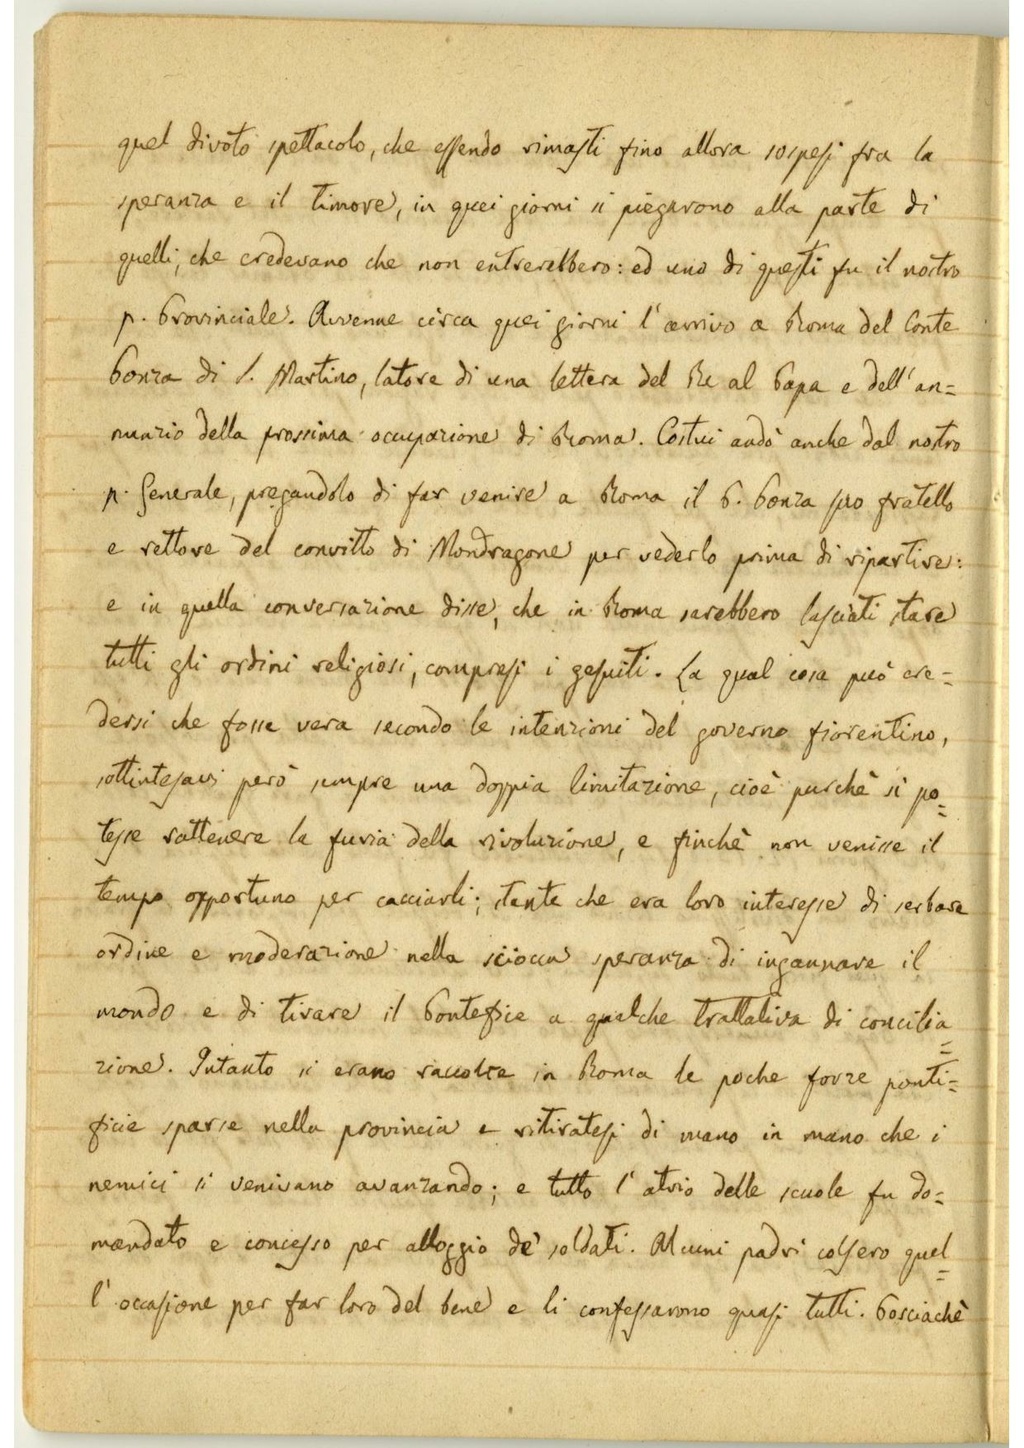 quel divoto spettacolo, che essendo rimasti fino allora sospesi fra la
speranza e il timore, in quei giorni si piegarono alla parte di
quelli, che credevano che non entrerebbero: ed uno di questi fu il nostro
p. Provinciale. Avvenne circa quei giorni l'arrivo a Roma del Conte
Ponza di S. Martino, latore di una lettera del Re al Papa e dell'an=
nunzio della prossima occupazione di Roma. Costui andò anche dal nostro
p. Generale, pregandolo di far venire a Roma il P. Ponza suo fratello
e rettore del convitto di Mondragone per vederlo prima di ripartire:
e in quella conversazione disse, che in Roma sarebbero lasciati stare
tutti gli ordini religiosi, compresi i gesuiti. La qual cosa può cre=
dersi che fosse vera secondo le intenzioni del governo fiorentino,
sottintesavi però sempre una doppia limitazione, cioè purchè si po=
tesse rattenere la furia della rivoluzione, e finchè non venisse il
tempo opportuno per cacciarli; stante che era loro interesse di serbare
ordine e moderazione nella sciocca speranza di ingannare il
mondo e di tirare il Pontefice a qualche trattativa di concilia=
zione. Intanto si erano raccolte in Roma le poche forze ponti=
ficie sparse nella provincia e ritiratesi di mano in mano che i
nemici si venivano avanzando; e tutto l'atrio delle scuole fu do=
mandato e concesso per alloggio de' soldati. Alcuni padri colsero quel=
l'occasione per far loro del bene e li confessarono quasi tutti. Posciachè